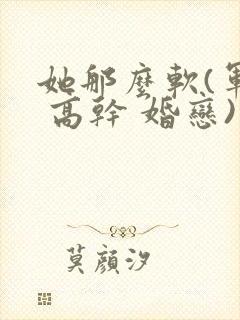 她那麼軟(軍
高幹 婚戀)
莫顔汐